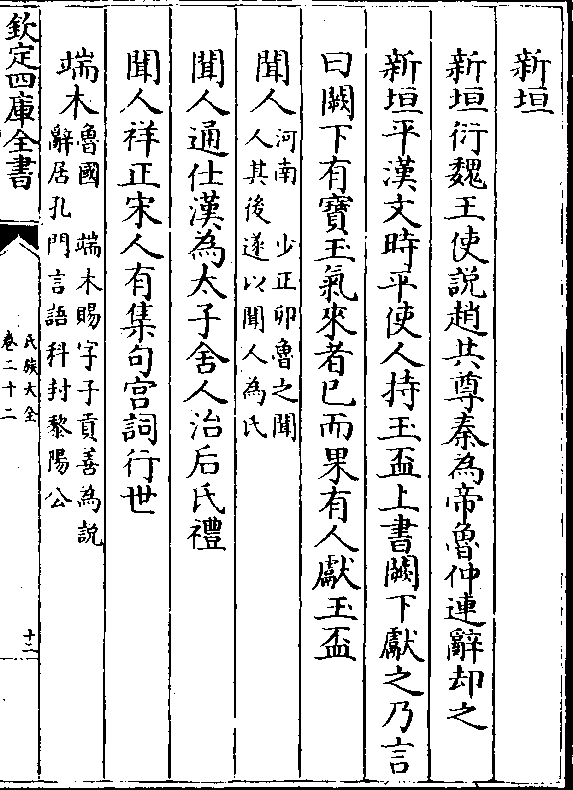 新垣
新垣衍魏王使説趙共尊秦為帝魯仲連辭却之
新垣平漢文時平使人持玉盃上書闕下獻之乃言
曰闕下有寶玉氣來者已而果有人獻玉盃
聞人河南　少正卯魯之聞
人其後遂以聞人為氏
聞人通仕漢為太子舍人治后氏禮
聞人祥正宋人有集句宫詞行世
端木魯國　端木賜字子貢善為説
辭居孔門言語科封黎陽公
欽定四庫全書
氏族大全
卷二十二
十二